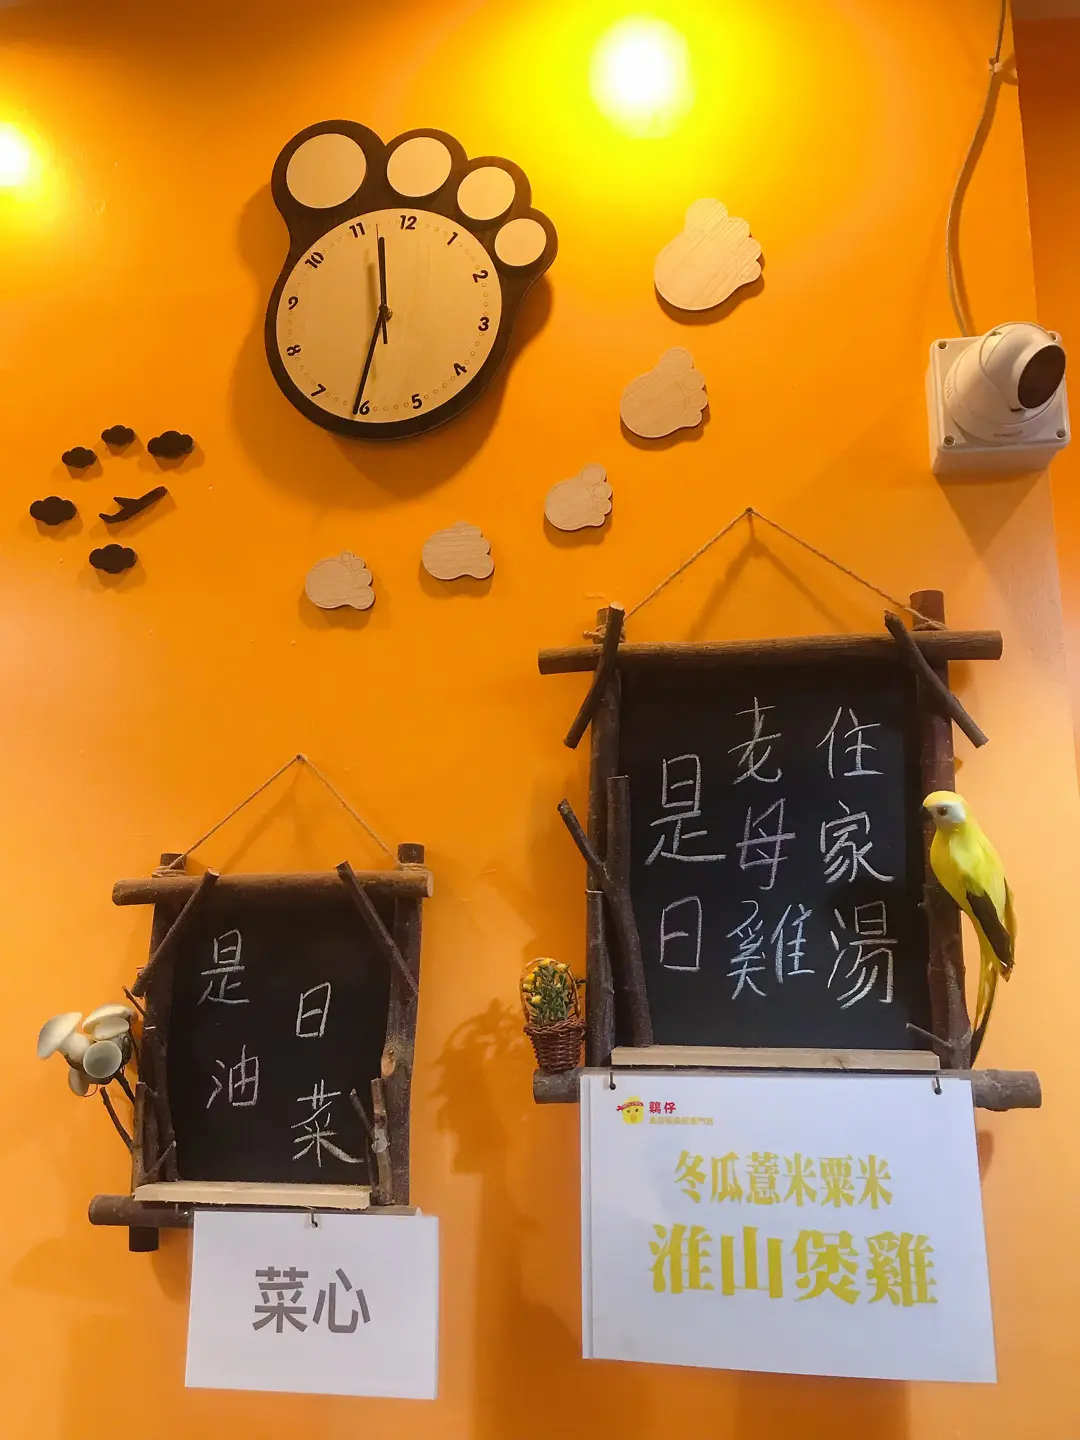 11 12 1 2 3 4 5 6 7 8 9 10
是日
老母雞
住家湯
是日
油菜
鷄仔
冬瓜薏米粟米
淮山煲雞
菜心